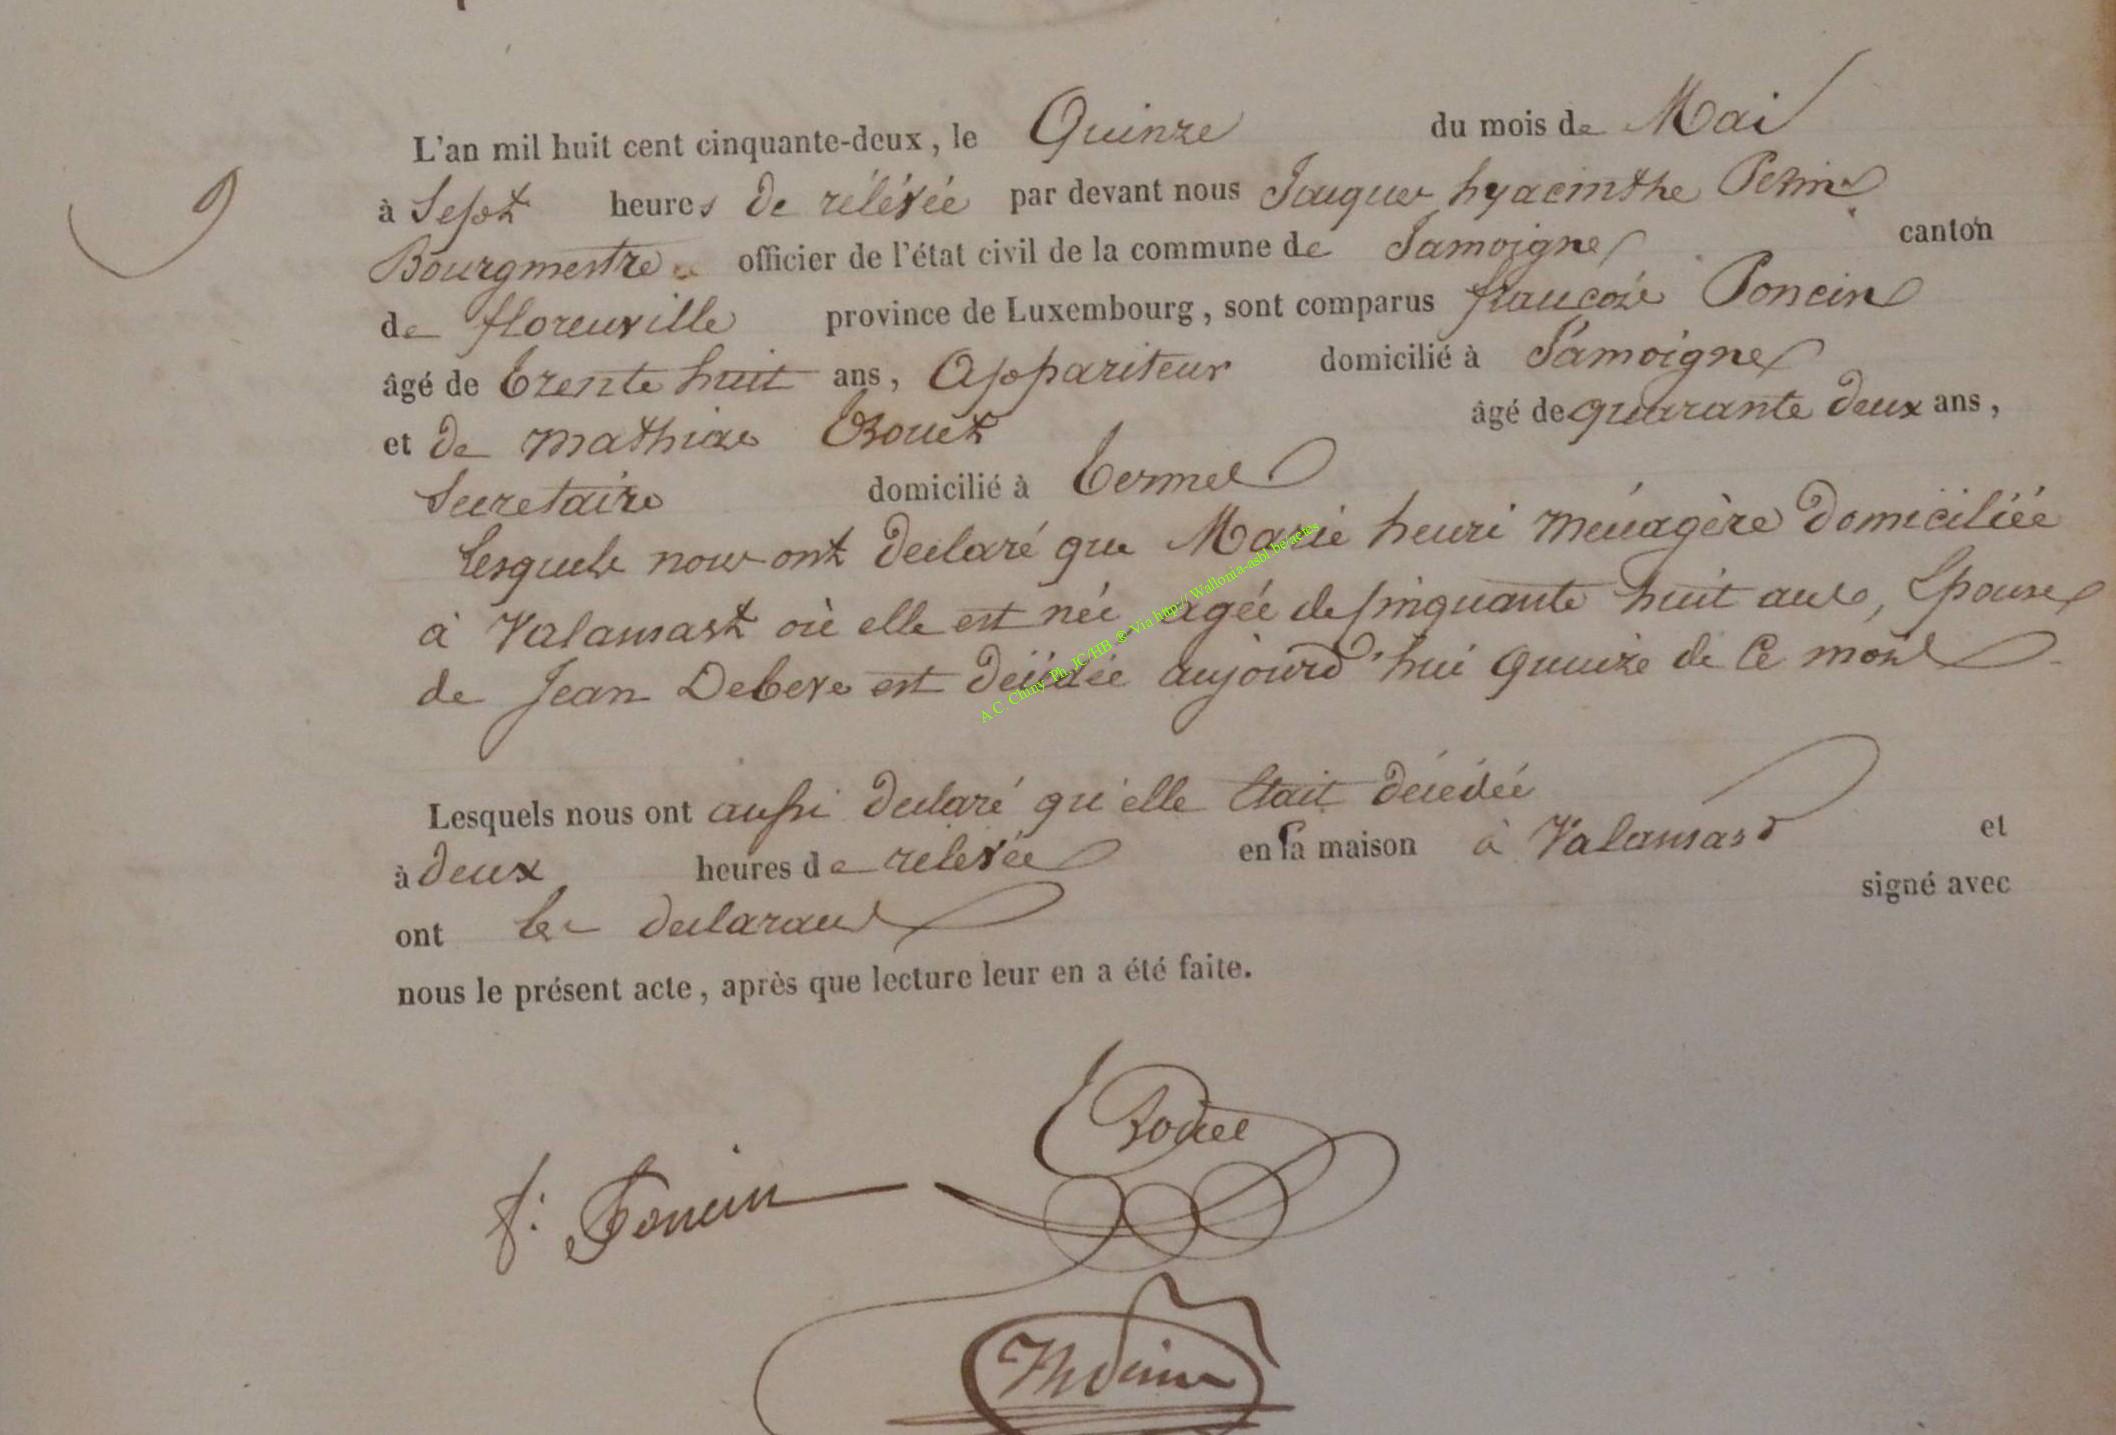 L'an mil huit cent cinquante-deux, le Quinze du mois de Mai
9
à Sept heures de rélévée par devant nous Jauques hyacinthe Perin
Bourgmestre officier de l'état civil de la commune de Jamoigne canton
de florenville province de Luxembourg, sont comparus françois Poncin
âgé de trente huit ans, Appariteur domicilié à Jamoigne
et de mathias âgé de quarante deux ans,
Secretaire domicilié à termes
lesquels nous ont declaré que Marie henri ménagère domiciliée
à Valansart où elle est née agée de cinquante huit ans, Epouse
de Jean est décédée aujourd'hui quinze de ce mois
Lesquels nous ont aussi declaré qu'elle était décédée
à deux heures de relevée en sa maison à Valansart et
ont les declarans signé avec
nous le présent acte, après que lecture leur en a été faite.
f: Poncin
A.C. Chiny Ph. JC/HB ® Via http://Wallonia-asbl.be/actes